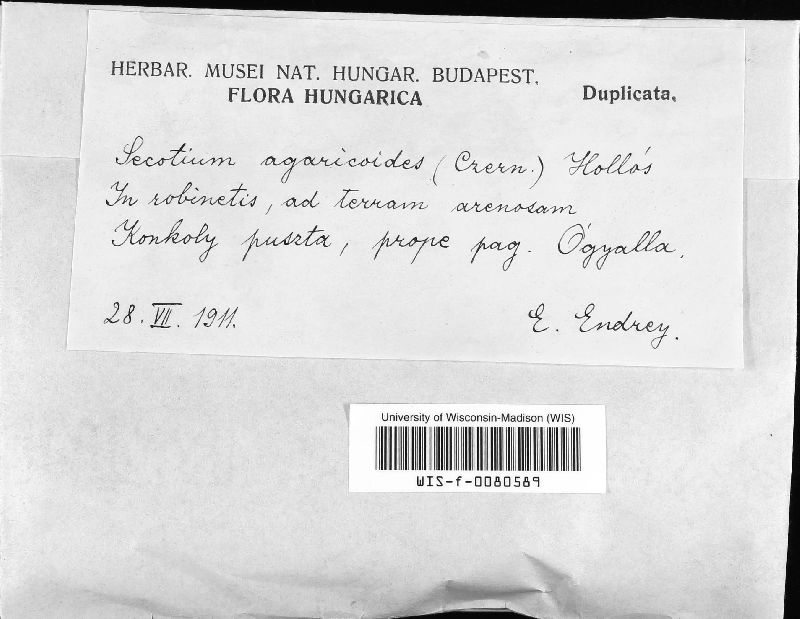 HERBAR. MUSEI NAT. HUNGAR. BUDAPEST.
FLORA HUNGARICA
Duplicata.
Secotium agaricoides (Czern.) Hollós
In robinetis, ad terram arenosam
Konkoly puszta, prope pag. Ógyalla.
28. VII. 1911.
E. Endrey.
University of Wisconsin-Madison (WIS)
WIS-f-0080589